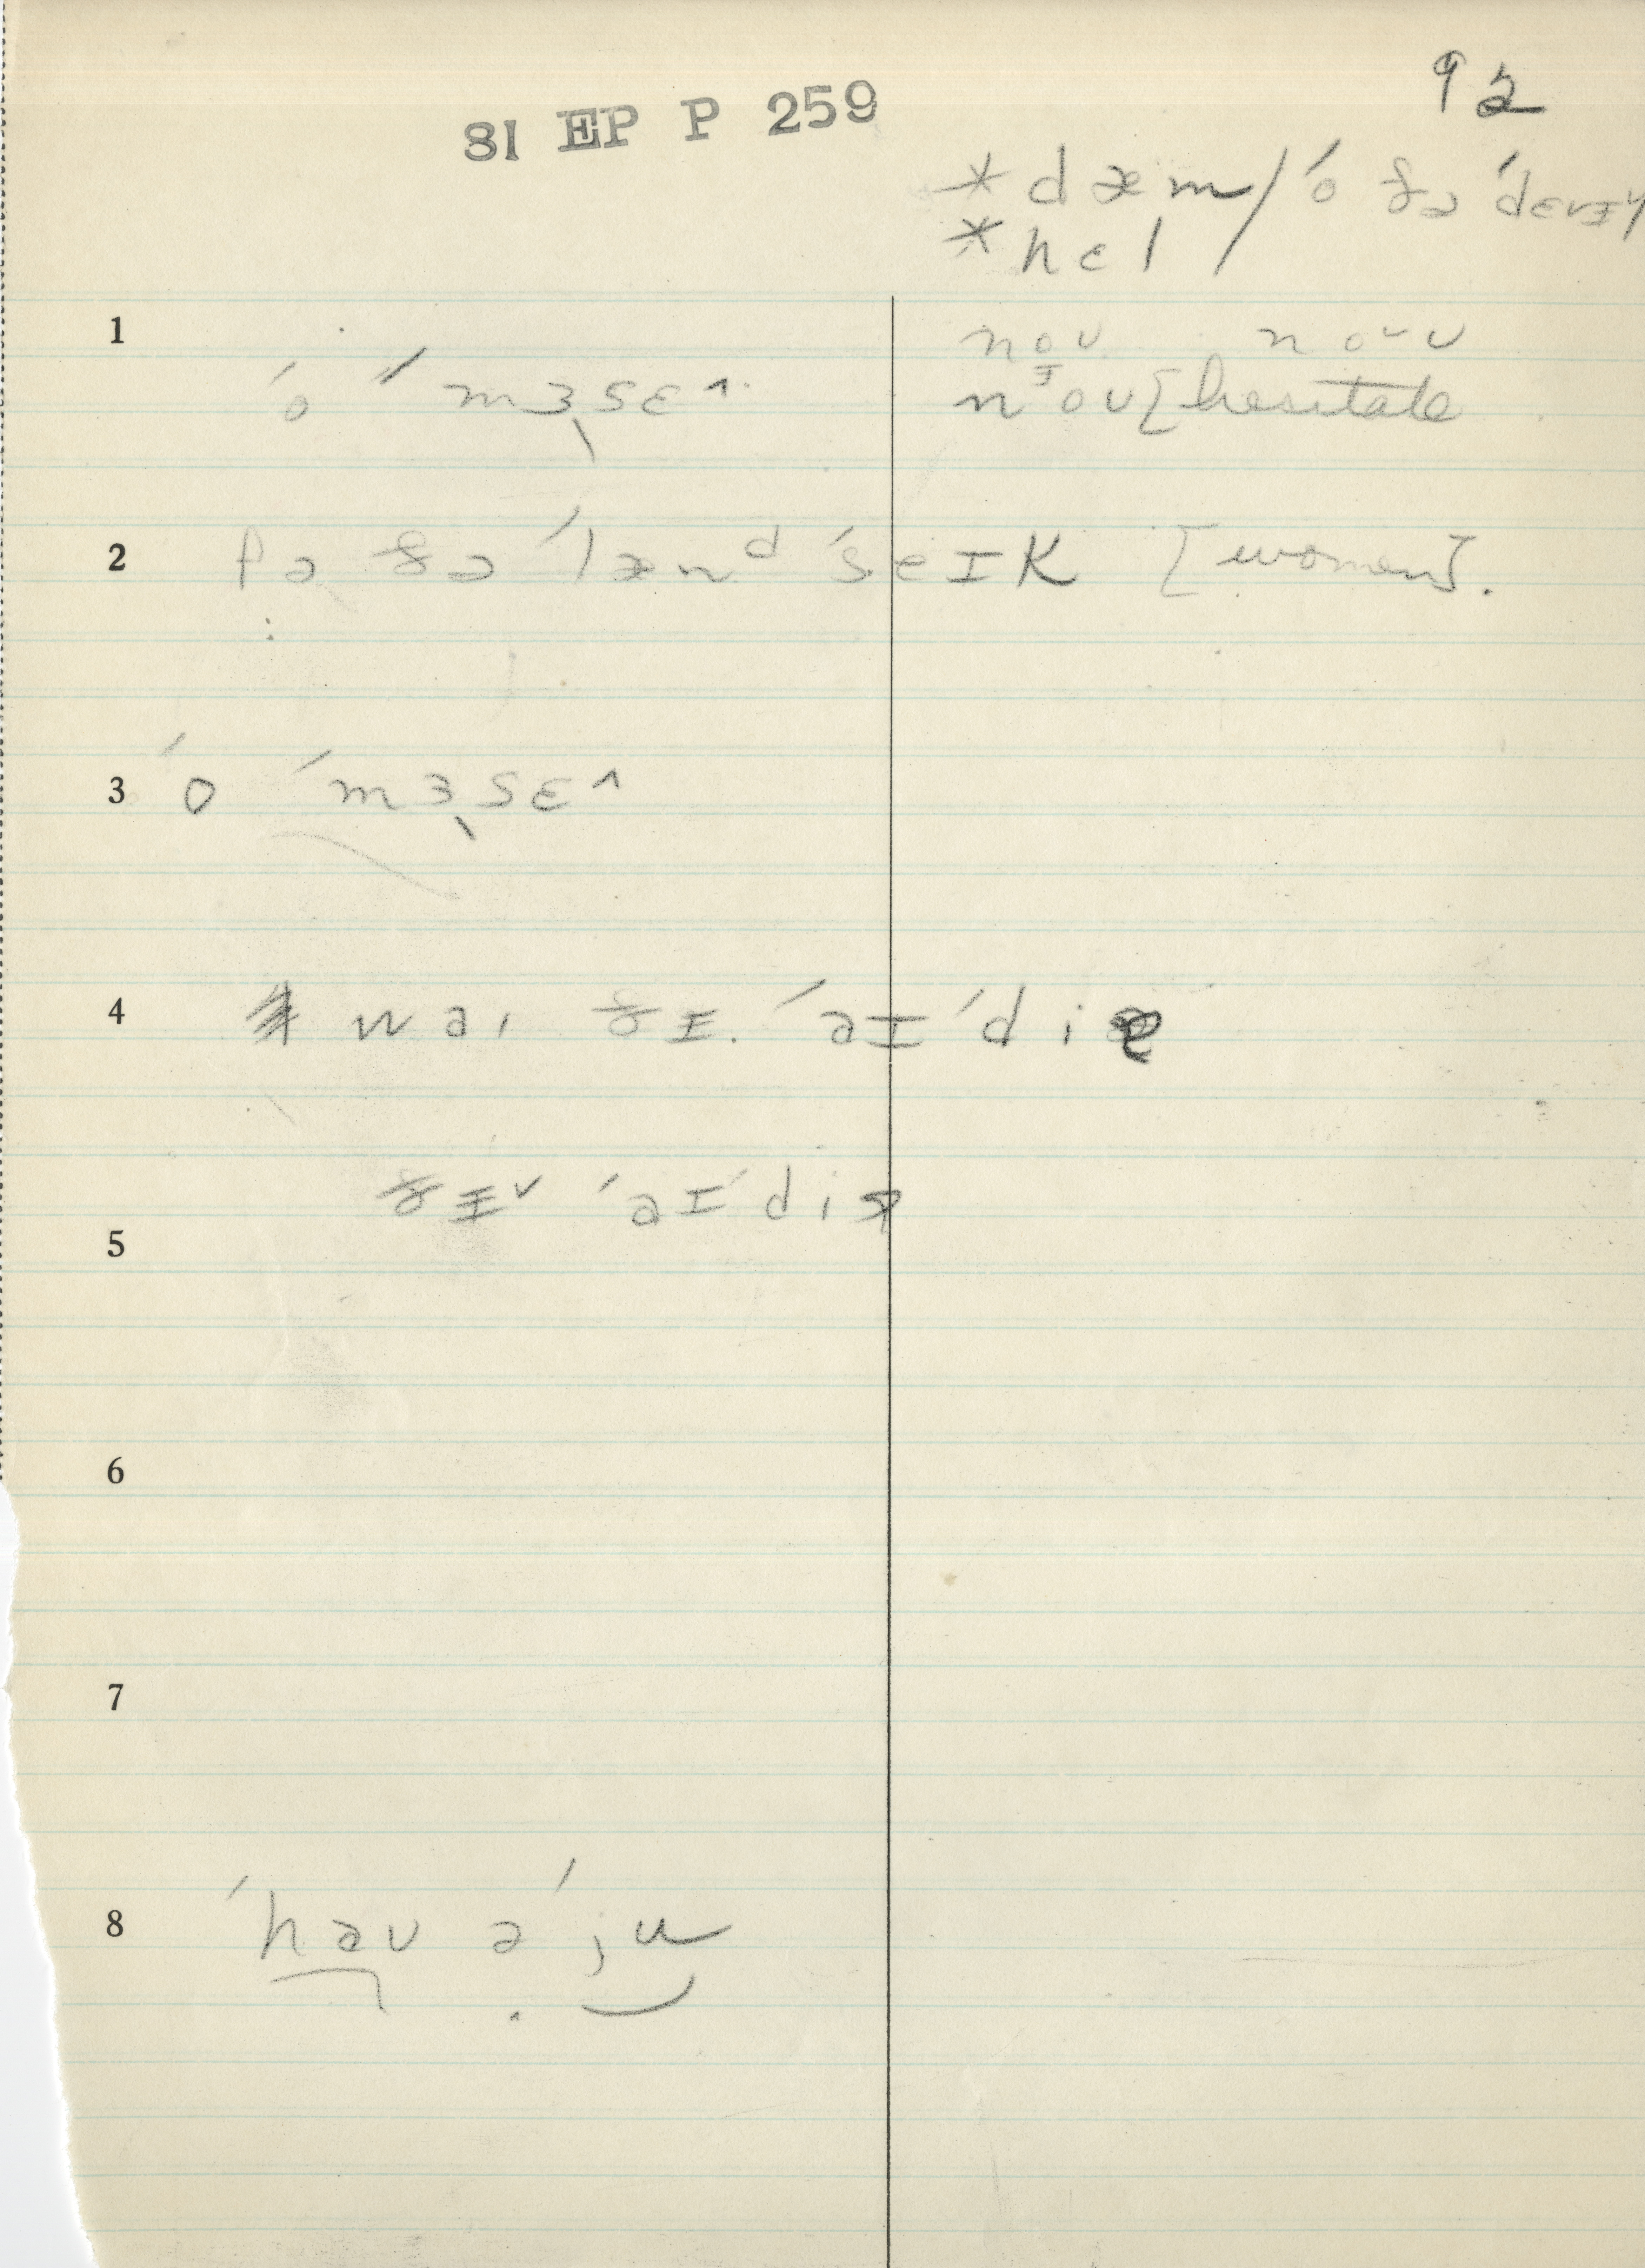 92
SI EP P 259
*dæm / ˈo ðə ˈdɛvɪɫ
*hɛl
1
ˈo ˈˈmɜ˞sɛ^
noʊ noˇʊ
nɪoʊ [hesitate
2 fə ðə ˈlænᵈ ˈseɪk [women].
3 ˈo ˈmɜ˞sɛ^
4 waɪ ðɪ. ˈaɪˈdiə
ðɪˇ ˈaɪˈdiə
5
6
7
8 ˈhaʊ əˈju